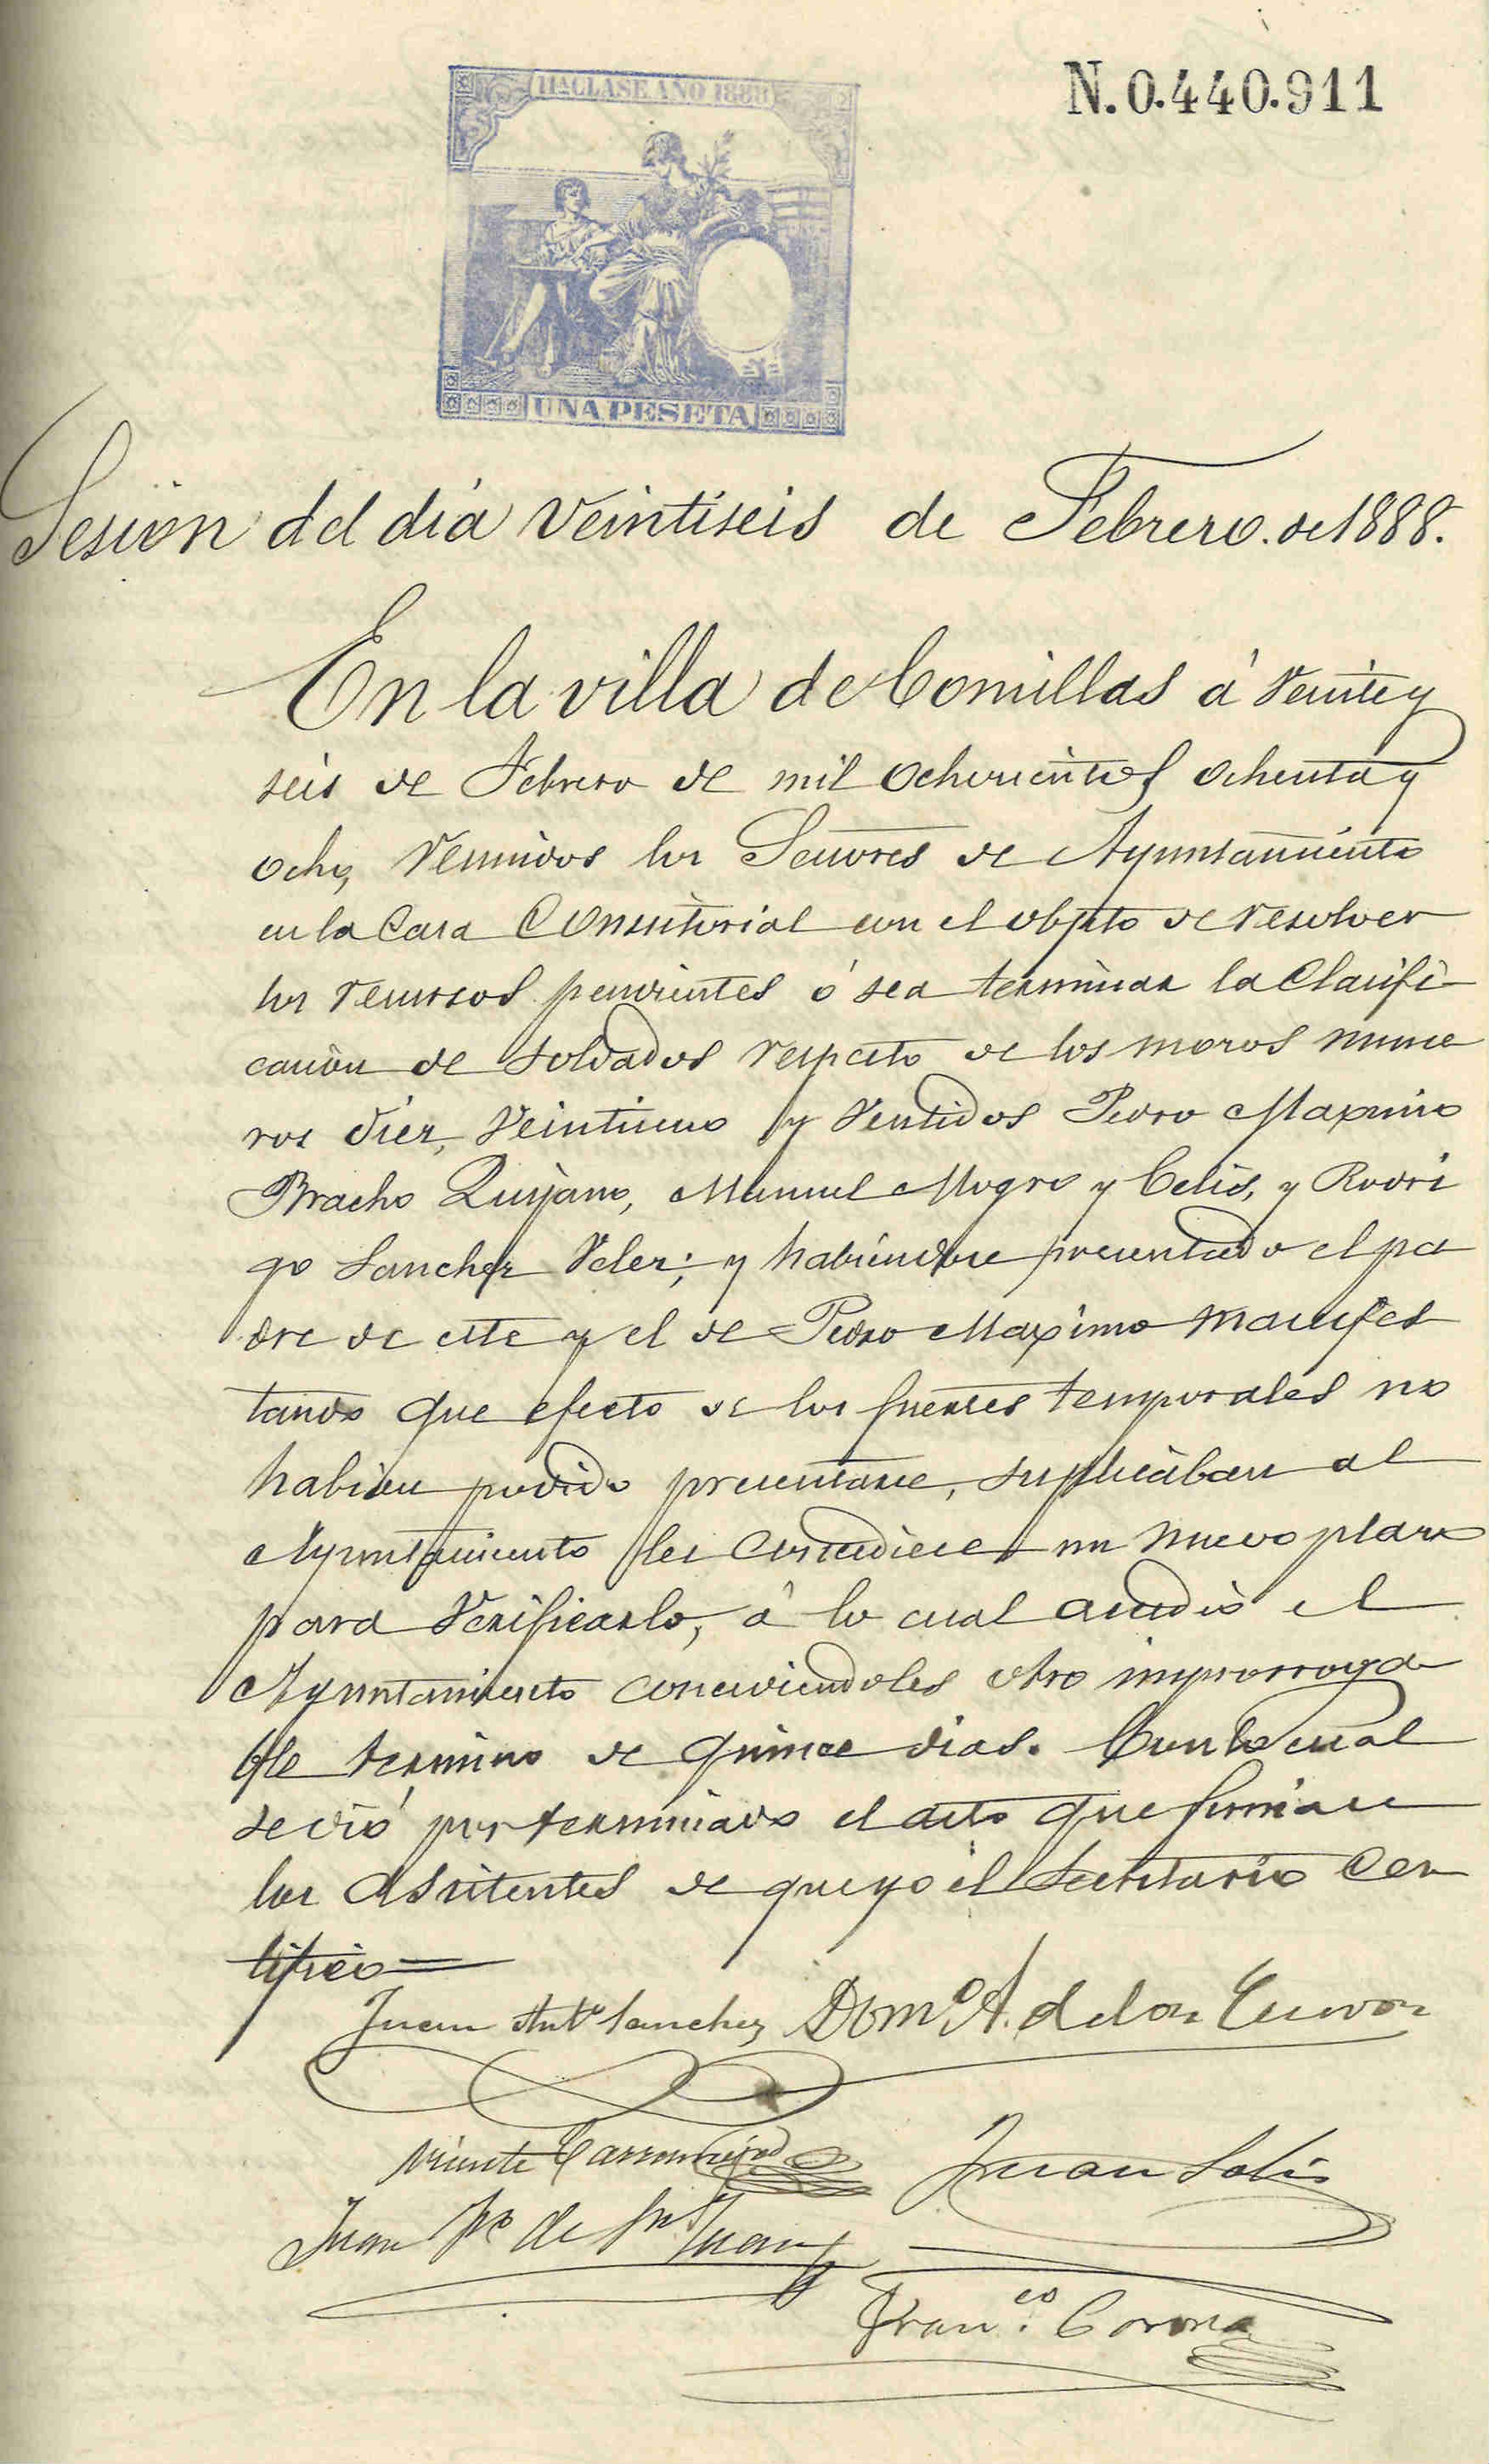 11ª CLASE AÑO 1888
N.0.440.911
UNA PESETA
Sesión del día Veintiseis de Febrero. de 1888.
En la villa de Comillas á Veinte y
seis de Febrero de mil ochocientos ochenta y
ocho, reunidos los Señores de Ayuntamiento
en la Casa Consistorial con el objeto de resolver
los recursos pendientes ó sea terminar la Clasifi-
cación de Soldados respecto de los mozos nume
ros diez, Veintiuno y Ventidos Pedro Maximo
Bracho Quijano, Manuel Mogro y Celis, y Rodri
go Sanchez Velez; y habiendose presentado el pa
dre de este y el de Pedro Maximo manifes
tando que efecto de los fuertes temporales no
habian podido presentarse, suplicaban al
Ayuntamiento les concediese un nuevo plazo
para Verificarlo, á lo cual accedió el
Ayuntamiento concediendoles otro improrroga
ble termino de quince dias. Con lo cual
se dió por terminado el acto que firman
los Asistentes de que yo el Secretario Cer
tifico=
Juan Antº Sanchez Domº A. de las Cuevas
Vicente Juan Solis
Juan de Sn Juan
Franco. Corona